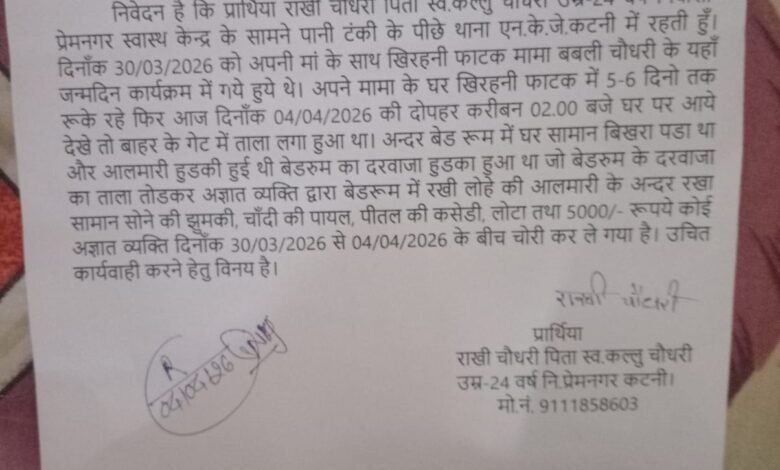 निवेदन है कि प्रार्थिया राखी चौधरी पिता स्व.कल्लु चौधरी उम्र-24 वर्ष
प्रेमनगर स्वास्थ केन्द्र के सामने पानी टंकी के पीछे थाना एन.के.जे.कटनी में रहती हुँ।
दिनाँक 30/03/2026 को अपनी मां के साथ खिरहनी फाटक मामा बबली चौधरी के यहाँ
जन्मदिन कार्यक्रम में गये हुये थे। अपने मामा के घर खिरहनी फाटक में 5-6 दिनो तक
रूके रहे फिर आज दिनाँक 04/04/2026 की दोपहर करीबन 02.00 बजे घर पर आये
देखे तो बाहर के गेट में ताला लगा हुआ था। अन्दर बेड रूम में घर सामान बिखरा पडा था
और आलमारी हुडकी हुई थी बेडरुम का दरवाजा हुडका हुआ था जो बेडरुम के दरवाजा
का ताला तोडकर अज्ञात व्यक्ति द्वारा बेडरूम में रखी लोहे की आलमारी के अन्दर रखा
सामान सोने की झुमकी, चाँदी की पायल, पीतल की कसेडी, लोटा तथा 5000/- रूपये कोई
अज्ञात व्यक्ति दिनाँक 30/03/2026 से 04/04/2026 के बीच चोरी कर ले गया है। उचित
कार्यवाही करने हेतु विनय है।
राखी चौधरी
प्रार्थिया
राखी चौधरी पिता स्व.कल्लु चौधरी
उम्र-24 वर्ष नि.प्रेमनगर कटनी।
मो.नं. 9111858603
R
04/04/26